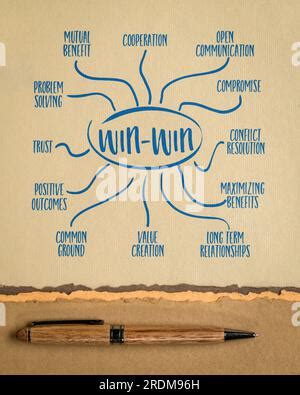 MUTUAL
BENEFIT
COOPERATION
OPEN
COMMUNICATION
PROBLEM
SOLVING
COMPROMISE
TRUST
WIN-WIN
CONFLICT
RESOLUTION
POSITIVE
OUTCOMES
MAXIMIZING
BENEFITS
COMMON
GROUND
VALUE
CREATION
LONG TERM
RELATIONSHIPS
alamy
Image ID: 2RDM96H
www.alamy.com